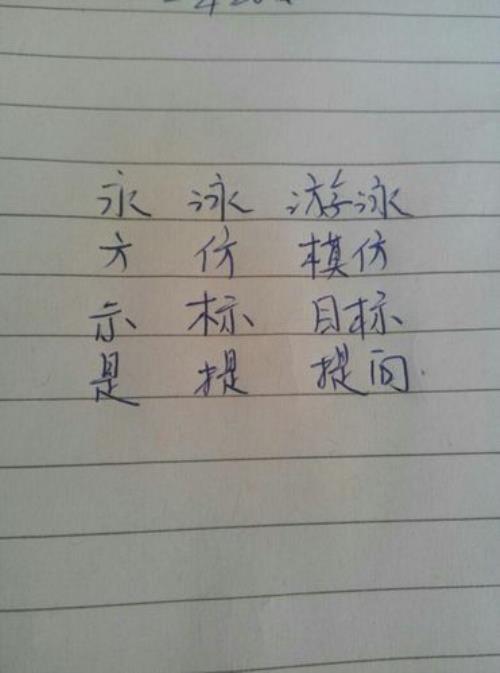 永 泳 游泳
方 仿 模仿
示 标 目标
是 提 提问.